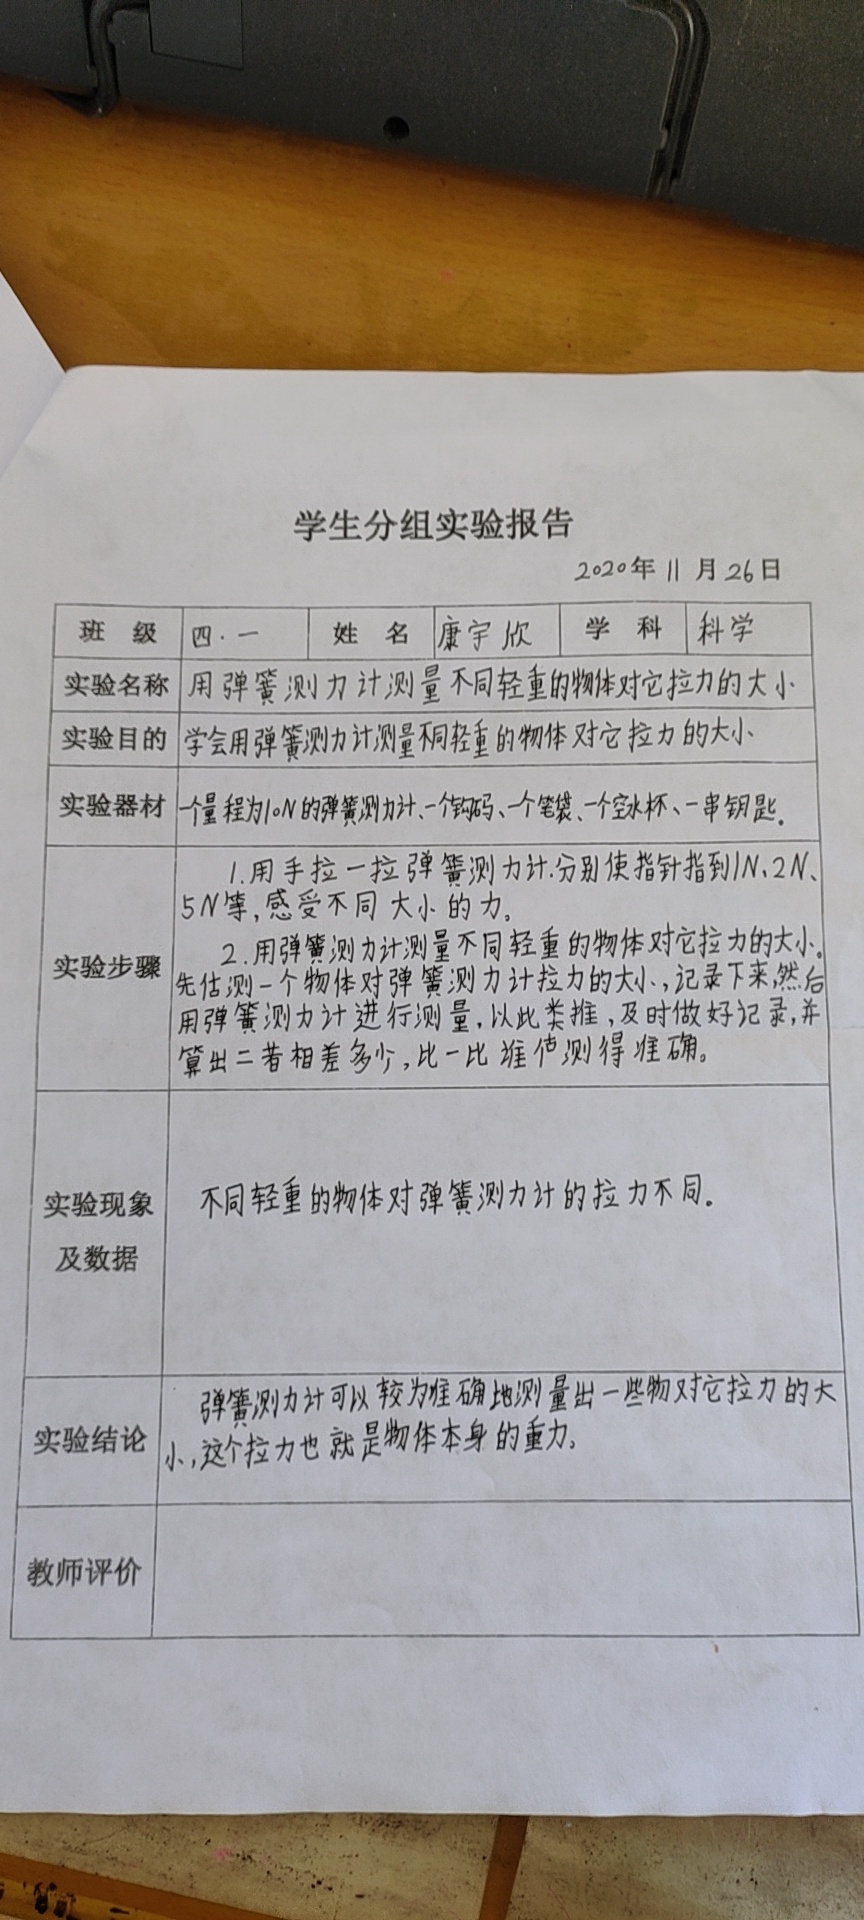 学生分组实验报告
2020年11月26日
班 级 四·一 姓 名 康宇欣 学 科 科学
实验名称 用弹簧测力计测量不同轻重的物体对它拉力的大小
实验目的 学会用弹簧测力计测量不同轻重的物体对它拉力的大小
实验器材 一个量程为10N的弹簧测力计、一个钩码、一个笔袋、一个空水杯、一串钥匙。
实验步骤
1.用手拉一拉弹簧测力计.分别使指针指到1N、2N、
5N等,感受不同大小的力。
2.用弹簧测力计测量不同轻重的物体对它拉力的大小。
先估测一个物体对弹簧测力计拉力的大小,记录下来,然后
用弹簧测力计进行测量,以此类推,及时做好记录,并
算出二者相差多少,比一比谁估测得准确。
实验现象
及数据
不同轻重的物体对弹簧测力计的拉力不同。
实验结论
弹簧测力计可以较为准确地测量出一些物对它拉力的大
小,这个拉力也就是物体本身的重力。
教师评价